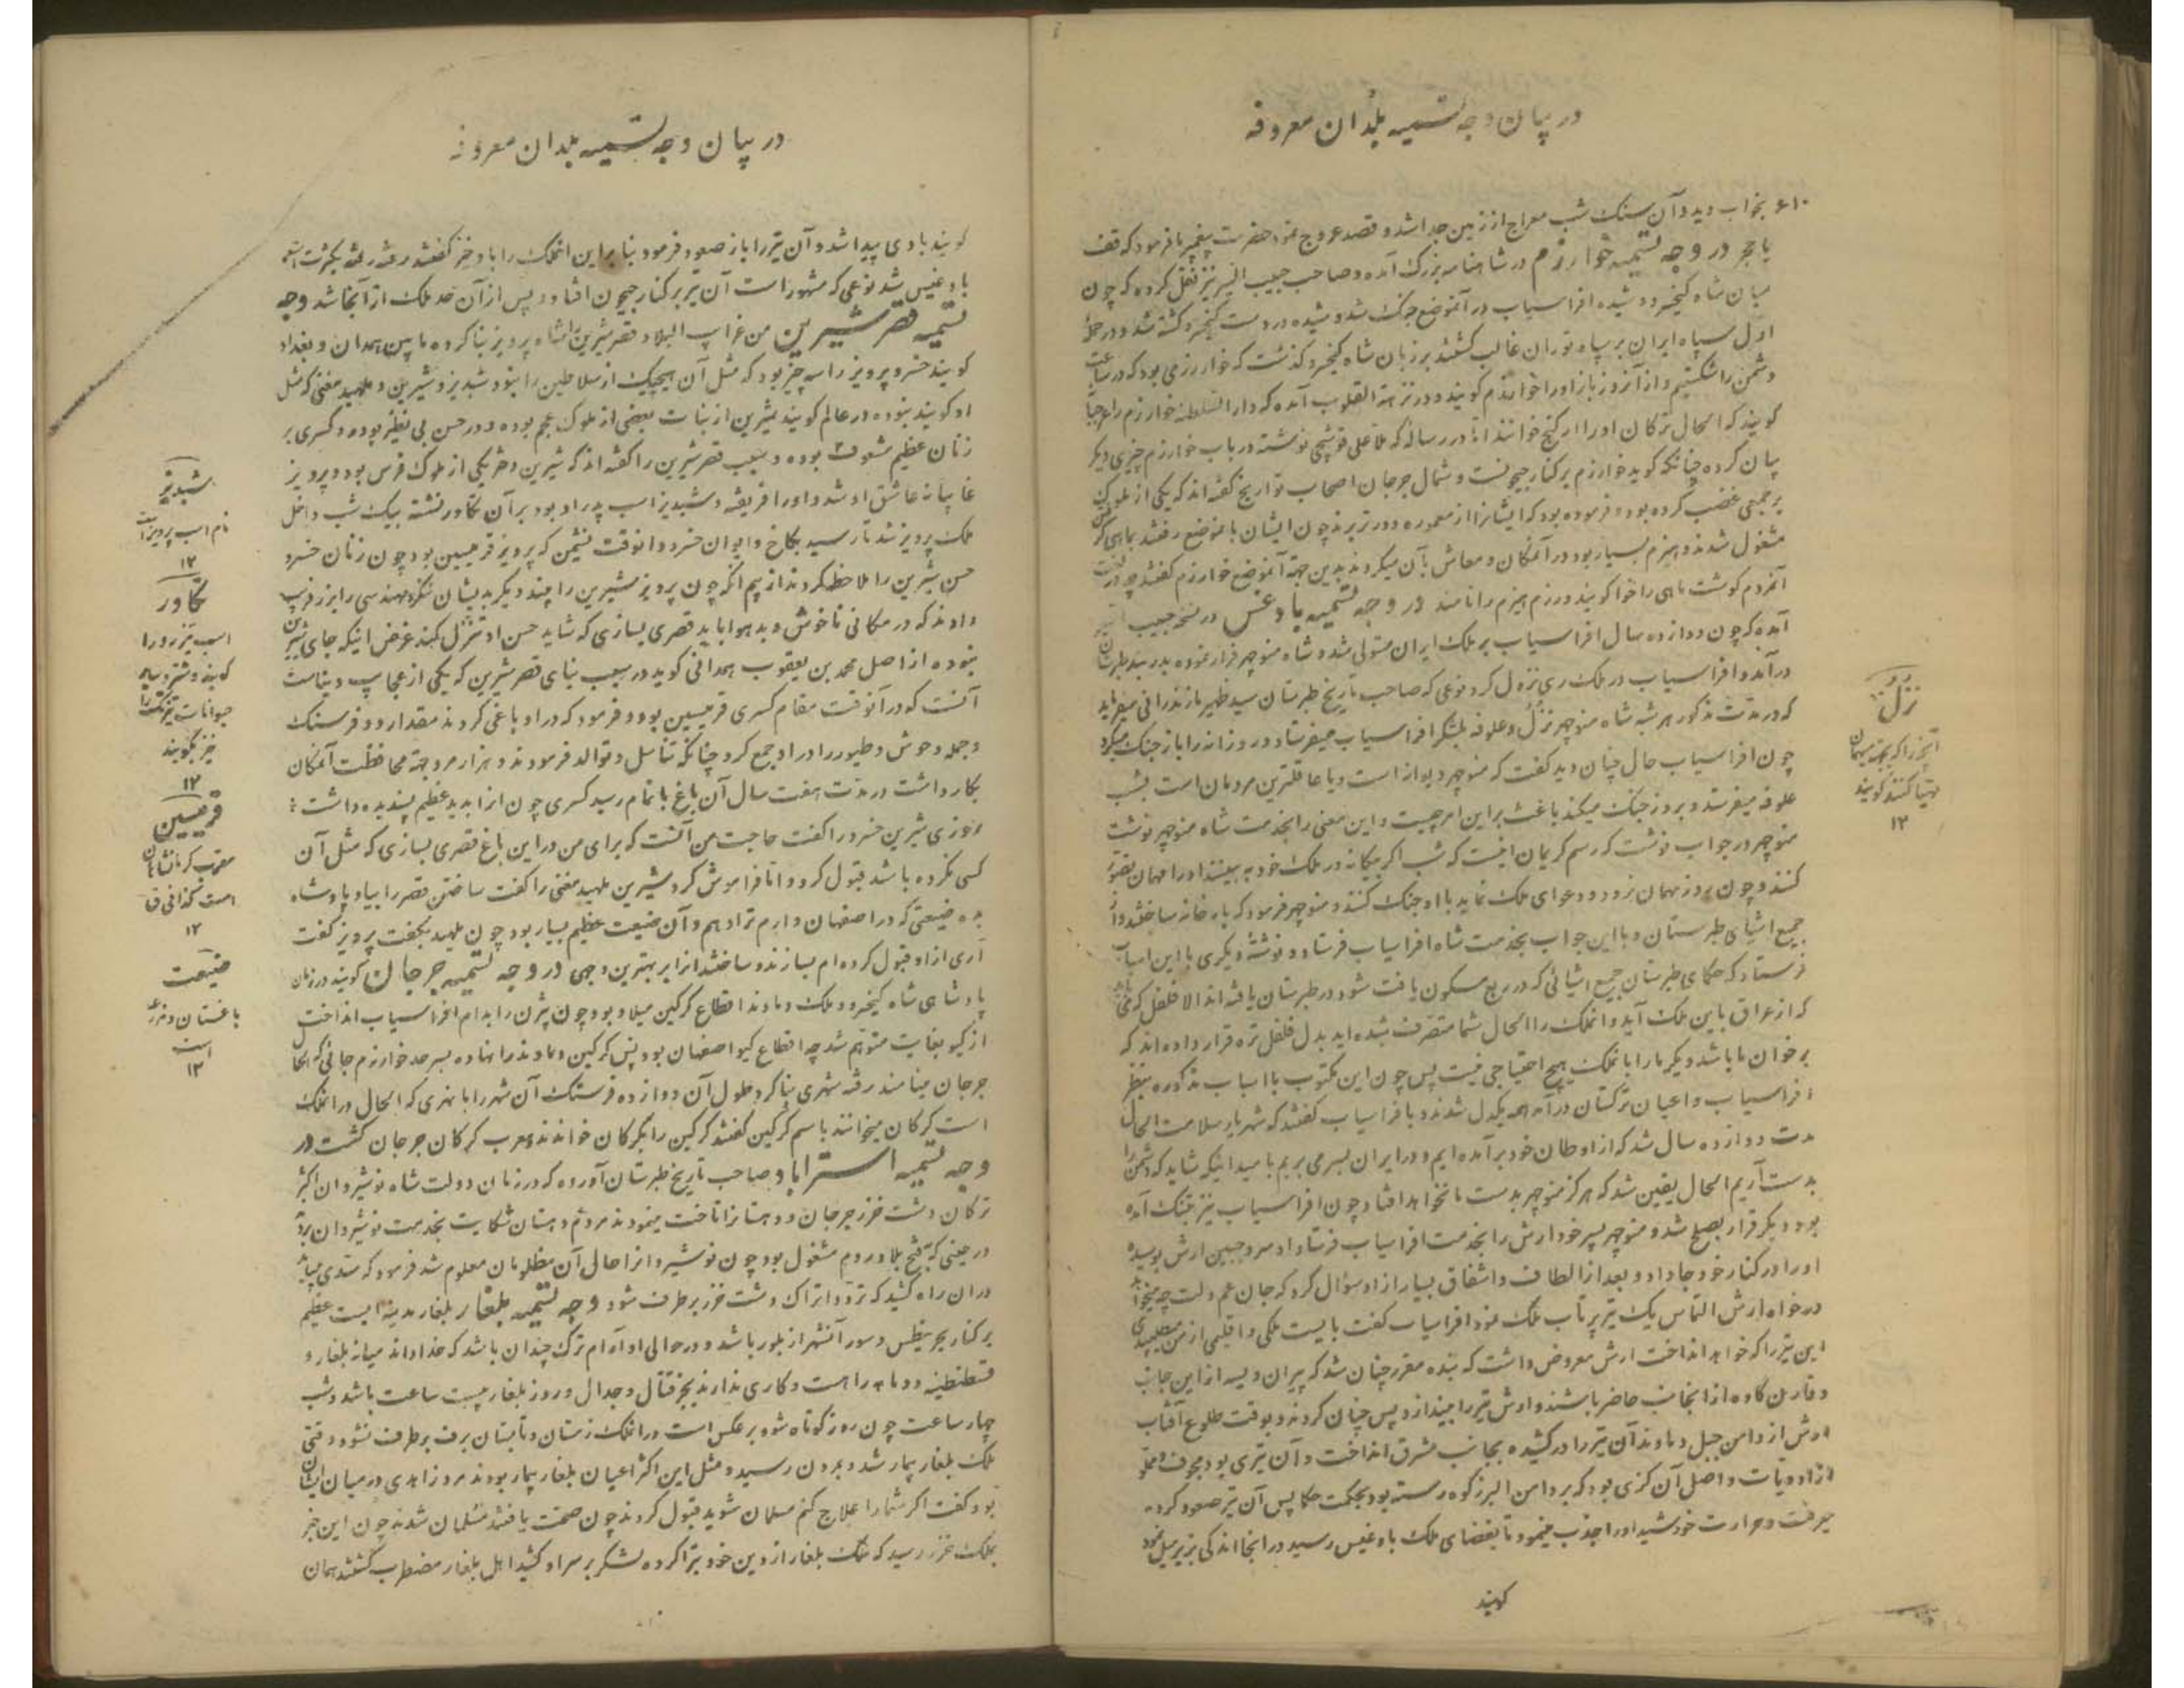 در بیان وجه تسمیه بلدان معروفه
۶۱۰ بخواب دید و آن سنک شب معراج از زمین جدا شد و قصد عروج نمود حضرت پیغمبر ما فرمود که قف
یا حجر در وجه تسمیه خوارزم در شاهنامه بزرک آمده و صاحب حبیب السیر نیز نقل کرده که چون
میان شاه کیخسرو و شیده افراسیاب در آنموضع جنک شد و شیده در دست کیخسرو کشته شد و در حمله
اول سپاه ایران بر سپاه توران غالب کشتند بر زبان شاه کیخسرو کذشت که خوار رزمی بود که در ساعت
دشمن را شکستیم و از آنروز باز او را خوارزم کویند و در نزهة القلوب آمده که دار السلطنه خوارزم را جرجانیه
کویند که الحال ترکان او را ارکنج خوانند اما در رساله که ملا علی قوشچی نوشته در باب خوارزم چیزی دیکر
بیان کرده چنانکه کوید خوارزم بر کنار جیحونست و شمال جرجان اصحاب تواریخ کفته اند که یکی از ملوک
بر جمعی غضب کرده بود و فرموده بود که ایشانرا از معموره دورتر برند چون ایشان بآنموضع رفتند بماهی کرفتن
مشغول شدند و هیزم بسیار بود در آنمکان و معاش بآن میکردند بدین جهة آنموضع خوارزم کفتند چه در لغت
آنمردم کوشت ماهی را خوا کویند و رزم هیزم را نامند در وجه تسمیه بادغس در نسخه حبیب السیر
آمده که چون دوازده سال افراسیاب بر ملک ایران مستولی شد و شاه منوچهر فرار نموده بدربند طبرستان
درآمد و افراسیاب در ملک ری نزول کرد نوعی که صاحب تاریخ طبرستان سید ظهیر مازندرانی میفرماید
که در مدت مذکور هر شبه شاه منوچهر نزل و علوفه بلشکر افراسیاب میفرستاد و در روز آنرا باز جنک میکرد
چون افراسیاب حال چنان دید کفت که منوچهر دیوانه است و یا عاقلترین مردمان است بشب
علوفه میفرستد و بروز جنک میکند باعث بر این امر چیست و این معنی را بخدمت شاه منوچهر نوشت
منوچهر در جواب نوشت که رسم کریمان اینست که شب اکر بیکانه در ملک خود به بینند او را مهمان تصور
کنند و چون بروز مهمان نرود و دعوای ملک نماید با او جنک کنند و منوچهر فرمود که بار خانه ساختند از
جمیع اشیای طبرستان و با این جواب بخدمت شاه افراسیاب فرستاد و نوشته دیکری با این اسباب
فرستاد که حکمای طبرستان جمیع اشیائی که در ربع مسکون یافت شود در طبرستان یافته اند الا فلفل کرمی
که از عراق باین ملک آید و انملک را الحال شما متصرف شده اید بدل فلفل تره قرار داده اند که
بر خوان ما باشد دیکر ما را بانملک هیچ احتیاجی نیست پس چون این مکتوب با اسباب مذکوره بنظر
افراسیاب و اعیان ترکستان درآمد همه یکدل شدند و بافراسیاب کفتند که شهریار سلامت الحال
مدت دوازده سال شد که از اوطان خود برآمده ایم و در ایران بسر می بریم بامید اینکه شاید که دشمن را
بدست آریم الحال یقین شد که هرکز منوچهر بدست ما نخواهد افتاد چون افراسیاب نیز بتنک آمده
بود دیکر قرار بصلح شد و منوچهر پسر خود ارش را بخدمت افراسیاب فرستاد او سر و جبین ارش بوسیده
او را در کنار خود جا داد و بعد از الطاف و اشفاق بسیار از او سؤال کرد که جان عم دلت چه میخواهد
درخواه ارش التماس یک تیر پرتاب ملک نمود افراسیاب کفت بایست ملکی و اقلیمی از من میطلبیدی
این تیر را که خواهد انداخت ارش معروض داشت که بنده مقرر چنان شد که پیران ویسه از این جانب
و قارن کاوه از آنجانب حاضر باشند و ارش تیر را بیندازد پس چنان کردند و بوقت طلوع آفتاب
ارش از دامن جبل دماوند آن تیر را در کشیده بجانب مشرق انداخت و آن تیری بود مجوف و مملو
از ادویات و اصل آن کزی بود که بر دامن البرز کوه رسته بود بحکمت حکما پس آن تیر صعود کرده
میرفت و حرارت خورشید او را جذب مینمود تا بفضای ملک بادغیس رسید در انجا اندکی بزیر میل نمود
کویند
نزل
آنچیز را که بجهة مهمان
مهیا کنند کویند
۱۲
در بیان وجه تسمیه بلدان معروفه
کویند بادی پیدا شد و آن تیر را باز صعود فرمود بنا براین انملک را باد خیز کفتند رفته رفته بکثرت استعمال
بادغیس شد نوعی که مشهور است آن تیر بر کنار جیحون افتاد و پس از آن حد ملک از آنجا شد وجه
تسمیه قصر شیرین من غرایب البلاد قصر شیرین را شاه پرویز بنا کرده مابین همدان و بغداد
کویند خسرو پرویز را سه چیز بود که مثل آن هیچیک از سلاطین را نبود شبدیز و شیرین و ملهبد مغنی که مثل
او کویند نبوده در عالم کویند شیرین از بنات بعضی از ملوک عجم بوده و در حسن بی نظیر بوده و کسری بر
زنان عظیم مشعوف بوده و سبب قصر شیرین را کفته اند که شیرین دختر یکی از ملوک فرس بود و پرویز
غایبانه عاشق او شد و او را فریفته و شبدیز اسب پدر او بود بر آن تکاور نشسته بیک شب داخل
ملک پرویز شد تا رسید بکاخ و ایوان خسرو و انوقت نشیمن که پرویز قرمیسین بود چون زنان خسرو
حسن شیرین را ملاحظه کردند از بیم انکه چون پرویز شیرین را چند دیکر بدیشان ننکرد مهندسی را بزر فریب
دادند که در مکانی ناخوش و بد هوا باید قصری بسازی که شاید حسن او تنزل کند غرض اینکه جای شیرین
نبوده از اصل محمد بن یعقوب همدانی کوید در سبب بنای قصر شیرین که یکی از عجایب دنیاست
آنست که در آنوقت مقام کسری قرمیسین بود و فرمود که در او باغی کردند مقدار دو فرسنک
و جمله وحوش و طیور را در او جمع کرد چنانکه تناسل و توالد فرمودند و هزار مرد بجهة محافظت آنمکان
بکار داشت در مدت هفت سال آن باغ باتمام رسید کسری چون انرا بدید عظیم پسندیده داشت
روزی شیرین خسرو را کفت حاجت من آنست که برای من در این باغ قصری بسازی که مثل آن
کسی نکرده باشد قبول کرد و اما فراموش کرد و شیرین ملهبد مغنی را کفت ساختن قصر را بیاد پادشاه
بده ضیعتی که در اصفهان دارم ترا دهم و آن ضیعت عظیم بسیار بود چون ملهبد بکفت پرویز کفت
آری از او قبول کرده ام بسازند و ساختند انرا بر بهترین وجهی در وجه تسمیه جرجان کویند در زمان
پادشاهی شاه کیخسرو و ملک دماوند اقطاع کرکین میلاد بود چون بیژن را بدام افراسیاب انداخت
از کیو بغایت متوهم شد چه اقطاع کیو اصفهان بود پس کرکین دماوند را نهاده بسرحد خوارزم جائی که الحال
جرجان مینامند رفته شهری بنا کرد طول آن دوازده فرسنک آن شهر را با نهری که الحال در انملک
است کرکان میخوانند باسم کرکین کفتند کرکین را بکرکان خواندند و معرب کرکان جرجان کشت در
وجه تسمیه استراباد صاحب تاریخ طبرستان آورده که در زمان دولت شاه نوشیروان اکثر
ترکان دشت خزر جرجان و دهستانرا تاخت مینمودند مردم دهستان شکایت بخدمت نوشیروان بردند
در حینی که بفتح بلاد روم مشغول بود چون نوشیروانرا حال آن مظلومان معلوم شد فرمود که سدی
دران راه کشید که تردد اتراک دشت خزر برطرف شود وجه تسمیه بلغار بلغار مدینه ایست عظیم
بر کنار بحر نیطس و سور آنشهر از بلور باشد و در حوالی او آرام ترک چندان باشد که خدا داند میانه بلغار و
قسطنطنیه دو ماهه راهست و کاری ندارند بجز قتال و جدال و روز بلغار بیست ساعت باشد و شب
چهار ساعت چون روز کوتاه شود برعکس است در انملک زمستان و تابستان برف برطرف نشود وقتی
ملک بلغار بیمار شد و بمردن رسید و مثل این اکثر اعیان بلغار بیمار بودند مرد زاهدی در میان ایشان
بود کفت اکر شما را علاج کنم مسلمان شوید قبول کردند چون صحت یافتند مسلمان شدند چون این خبر
بملک خزر رسید که ملک بلغار از دین خود تبرا کرده لشکر بر سر او کشید اهل بلغار مضطرب کشتند همان
شبدیز
نام اسب پرویز است
۱۲
تکاور
اسب تیزرو را
کویند و شتر و سایر
حیوانات تیزتک را
نیز کویند
۱۲
قرمیسین
معرب کرمانشاهان
است کذا فی ق
۱۲
ضیعت
باغستان و مزرعه
است
۱۲